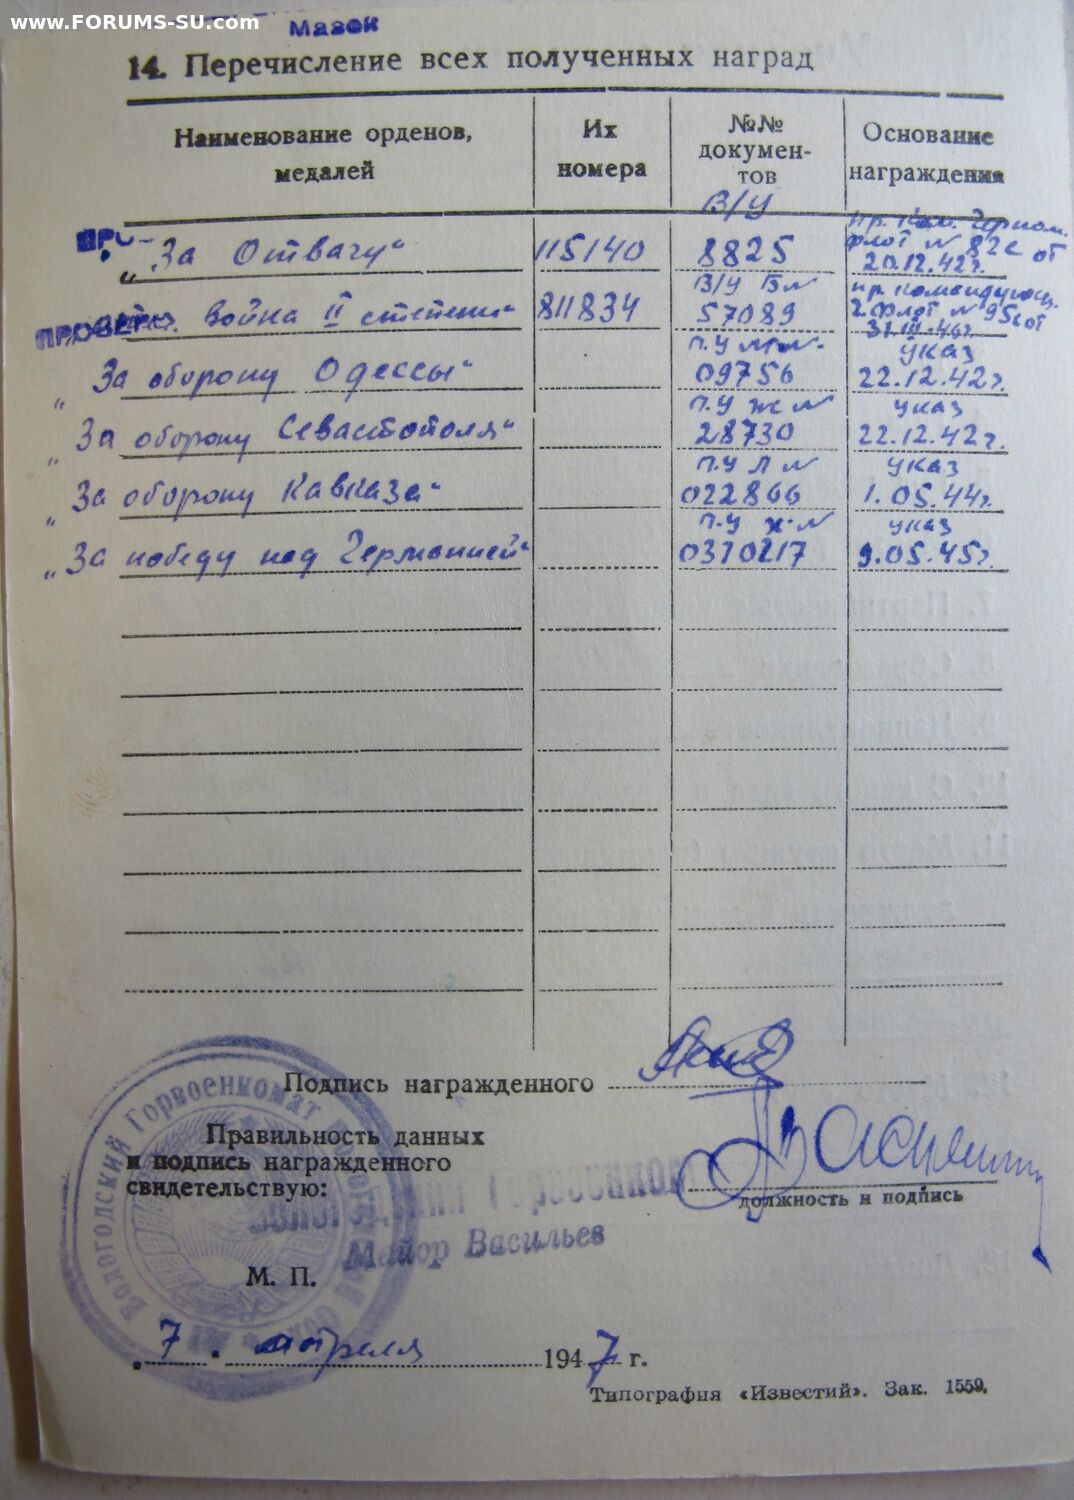 www.FORUMS-SU.com
Мазок
14. Перечисление всех полученных наград
Наименование орденов, медалей
Их номера
№№ документов
Основание награждения
„За Отвагу“ 115140 В/У 8825 пр. Ком. Черном. флот № 82с от 20.12.42г.
ПРОВЕРЕ
Война II степени“ 811834 В/У Б№ 57089 пр. командующ. 2. флот № 95с от 31.III.46г.
„За оборону Одессы“ П.У М№ 09756 указ 22.12.42г.
„За оборону Севастополя“ П.У Ж№ 28730 указ 22.12.42г.
„За оборону Кавказа“ П.У Л№ 022866 указ 1.05.44г.
„За победу над Германией“ П.У Ж№ 0370217 указ 9.05.45г.
Подпись награжденного
Правильность данных
и подпись награжденного
свидетельствую:
должность и подпись
Майор Васильев
М. П.
Вологодский Горвоенкомат
7 апреля 1947 г.
Типография «Известий». Зак. 1559.